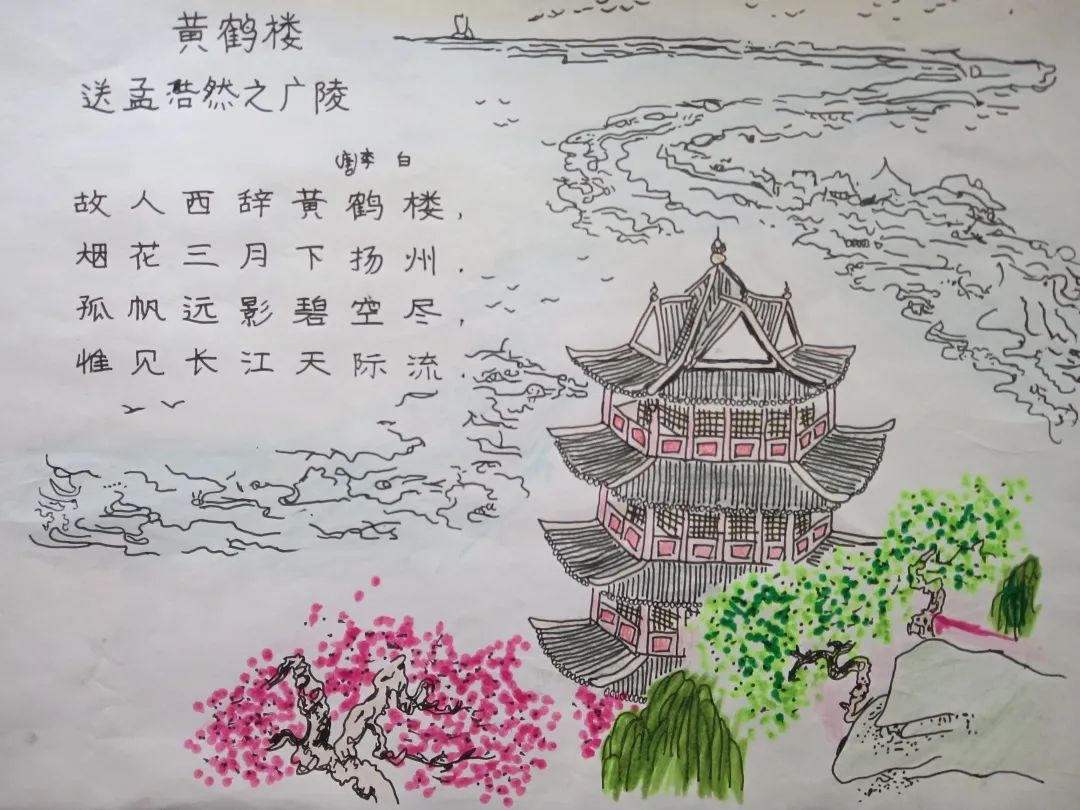 黄鹤楼
送孟浩然之广陵
唐 李 白
故人西辞黄鹤楼，
烟花三月下扬州．
孤帆远影碧空尽，
惟见长江天际流．